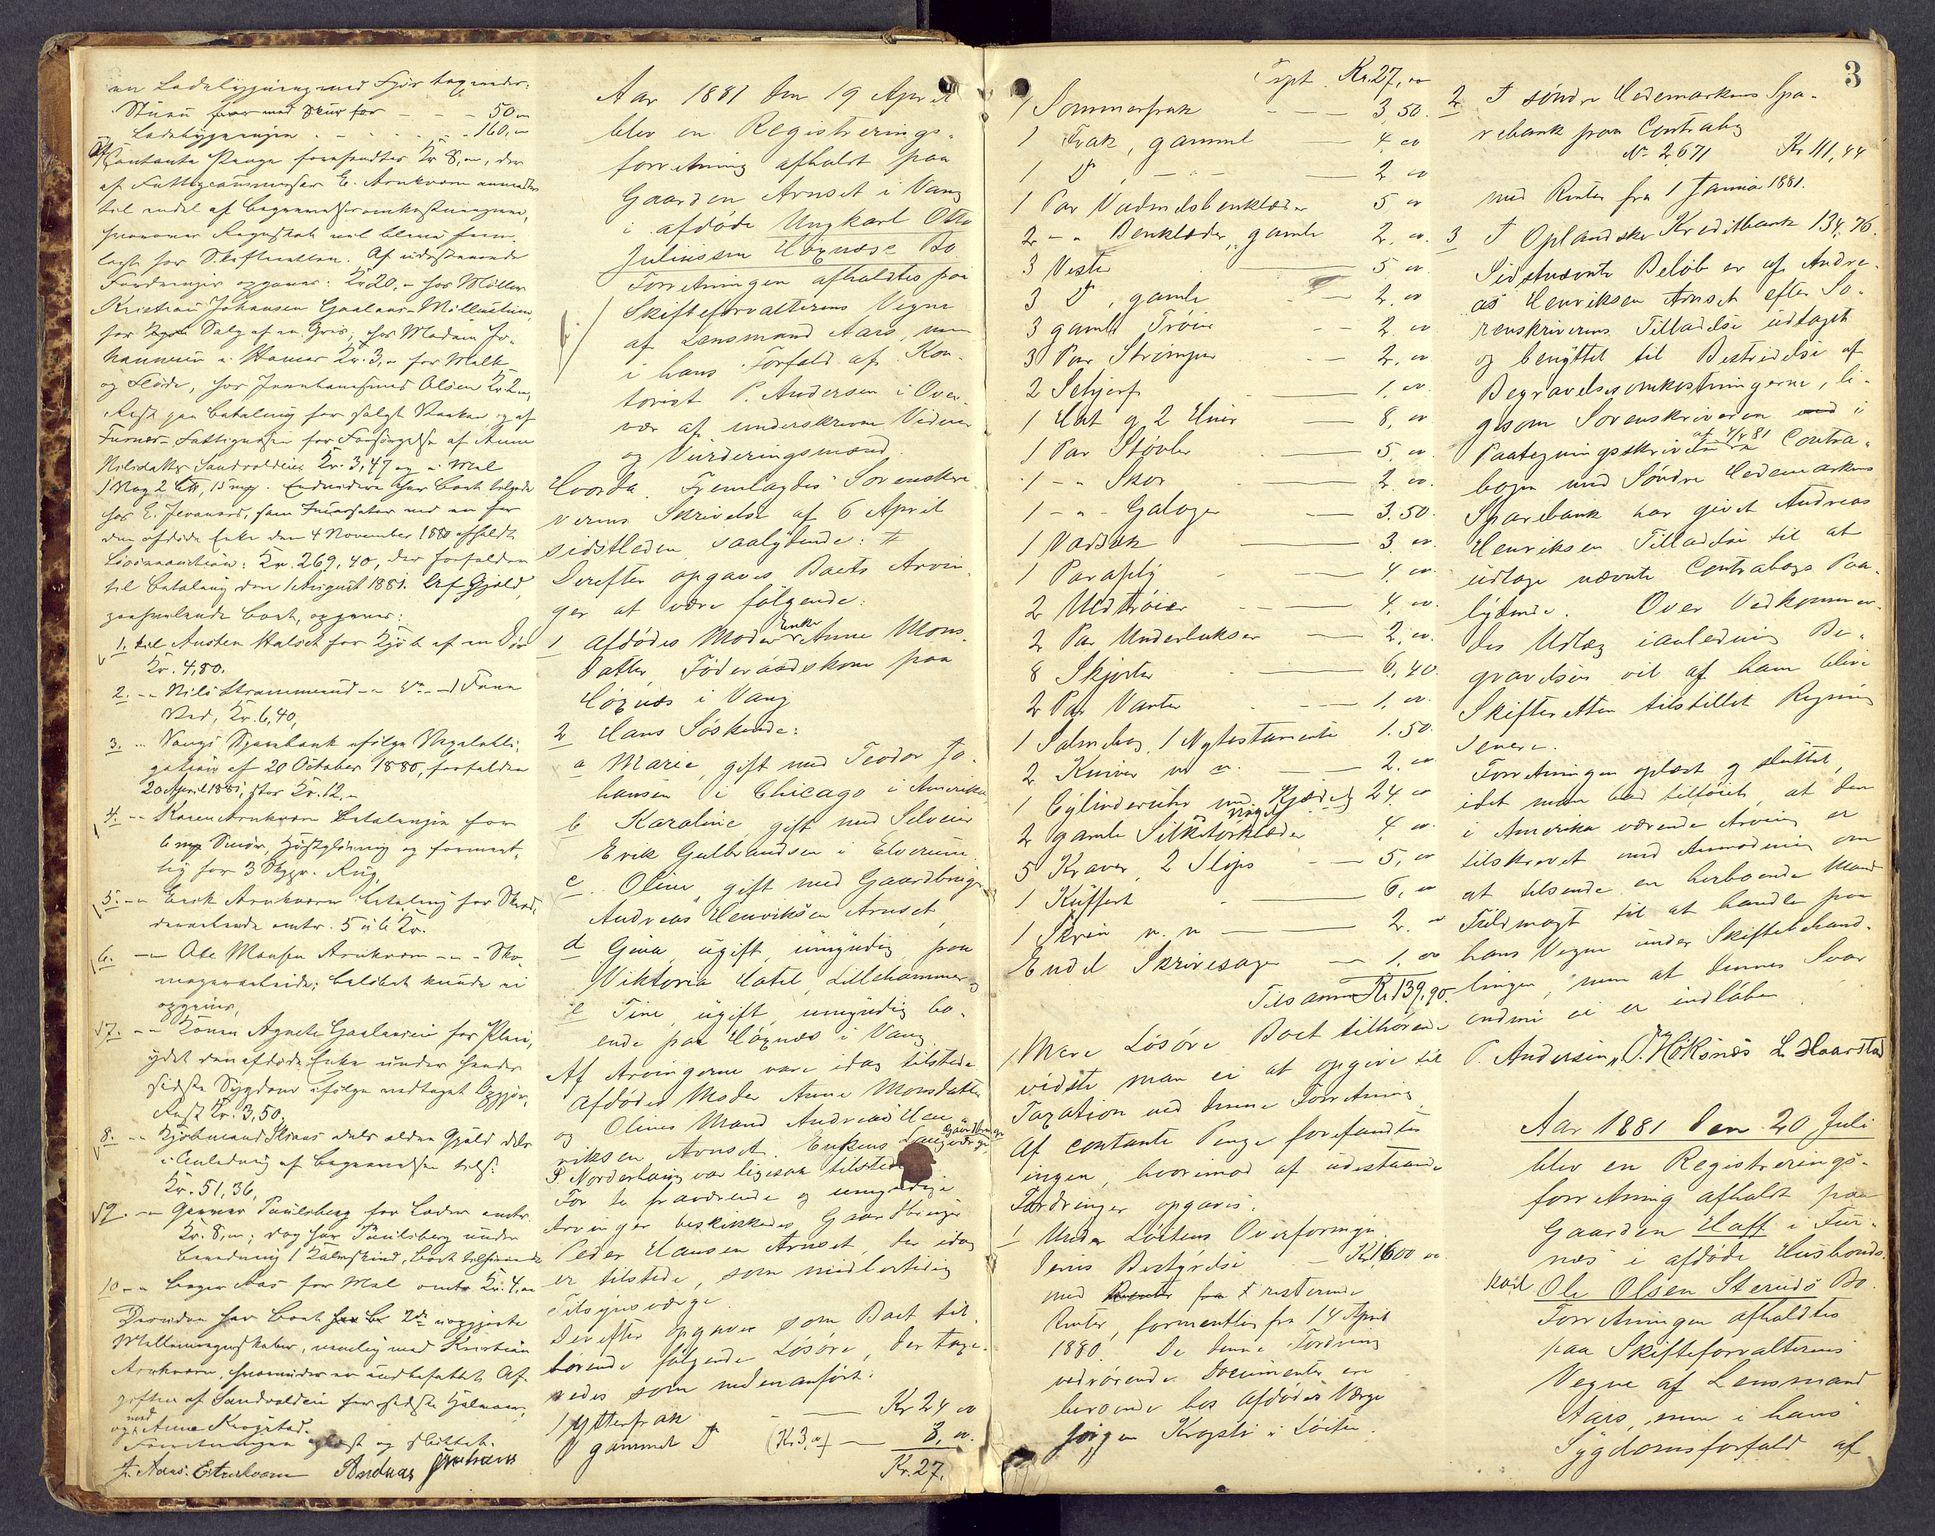 en Ladebygning med Fjøs taxeredes
Stuen
50 „
Ladebygningen - - - - 160, „
Contante Penge forefandtes Kr 8, „, der
af Fattigcommissær E. Arnkværn
til endel af Begravelsesomkostningerne,
hvorover Regnskab vil blive frem-
lagt for Skifteretten. Af udestaaende
Fordringer opgaves: Kr 20, „ hos Møller
Kristian Johansen
for Salg af en Gris, hos Madam Jo-
hannesen i Hamar Kr. 3, „ for Melk
og Fløde, hos Olsen Kr. 2 „
Rest paa Betaling for solgt og af
Furnes Fattigvæsen for Forsørgelse af Anne
Nilsdatter Sandvolden Kr. 3,47 og i Mel
1 Vog 2 15 mk. Endvidere har Boet tilgode
hos E. som Incassator ved en for
den afdøde Enke den 4 November 1880 afholdt
Løsøreauction: Kr. 269,40, der forfalder
til Betaling den 1 August 1881. Af Gjæld,
paahvilende Boet, opgaves:
1. til Austen Halset for Kjøb af en
Kr. 4,80.
2. - „ Nils
Ved, Kr. 6,40,
3. „ Vangs Sparebank ifølge Vexelobli-
gation af 20 October 1880, forfalden
20 April 1881, stor Kr. 12, „
4. - „ Karen Arnkværn Betalingen for
6 mk Smør, og forment-
lig for 3 Skpr. Rug,
5. - „ Erik Arnkværn Betaling for Skræd-
derarbeide omtr. 5 à 6 Kr.
6. - „ Ole Monsen Arnkværn - „ - Sko-
magerarbeide; Beløbet kunde ei
opgives,
7. - „ Konen Agnete for Pleie,
ydet den afdøde Enke under hendes
sidste Sygdom ifølge vedtaget Opgjør,
Rest Kr. 3,50.
8. - „ Kjøbmand dels ældre Gjæld dels
i Anledning af Begravelsen tils.
Kr. 51,36,
9. - „ Garver Paulsberg for Læder omtr.
Kr. 8, „; dog har Paulsberg under
Beredning 1 Kalveskind, Boet tilhørende
10 - „ Bager Aas for Mel omtr Kr. 4, „
Desuden har Boet 2de uopgjorte
Mellemregnskaber, nemlig med Kristian
Arnkværn, hvorunder er indbefattet Af-
giften af Sandvolden for sidste Halvaar,
og med Anna Krogstad.
Forretningen oplæst og sluttet.
J. Aars. E. Arnkværn Andreas
Aar 1881 den 19 April
blev en Registrerings-
forretning afholdt paa
Gaarden Arnset i Vang
i afdøde Ungkarl Otto
Juliussen Høxnæs's Bo
Forretningen afholdtes paa
Skifteforvalterens Vegne
af Lensmand Aars, men
i hans Forfald af Kon-
torist P. Andersen i Over-
vær af underskrevne Vidner
og Vurderingsmænd.
Hvorda. Fremlagdes Sorenskri-
verens Skrivelse af 6 April
sidstleden saalydende: #
Derefter opgaves Boets Arvin-
ger at være følgende:
1 Afdødes Moder Enke Anne Mons-
datter, Føderaadskone paa
Høxnæs i Vang
2 Hans Søskende:
a Marie, gift med Teodor Jo-
hansen i Chicago i Amerika
b Karoline gift med Selveier
Erik Gulbrandsen i Elverum
c Oline, gift med Gaardbruger
Andreas Henriksen Arnset,
d Gina, ugift, umyndig paa
Viktoria Hotel, Lillehammer og
e Tine, ugift, umyndig bo-
ende paa Høxnæs i Vang
Af Arvingerne vare idag tilstede
Afdødes Moder Anne Monsdatter
og Olines Mand Andreas Hen-
riksen Arnset. Enkens Laugværge Gaardbruger
P. Norderhaug var ligesaa tilstede
For de fraværende og umyndige
Arvinger beskikkedes Gaardbruger
Peder Hansen Arnset, der idag
er tilstede, som midlertidig
Tilsynsværge.
Derefter opgaves som Boet til-
hørende følgende Løsøre, der taxe-
redes som nedenanført:
1 Ytterfrak - Kr 24 00
1 gammel D (Kr 3, „) - 3, 00.
Kr. 27,
3
Trspt. Kr. 27, 00
1 Sommerfrak - - - 3,50.
1 Frak, gammel - 4, 00
1 D, - „ - 2 00
1 Par Vadmelsbenklæder 5 00
2 - „ Benklæder, gamle 2, 00.
3 Veste 5, 00.
3 D, gamle - 2, 00
3 gamle Trøier - 2, 00
3 Par Strømper - 2, 00
2 Schjerf 1, 00
1 Hat og 2 Huer - 8, 00
1 Par Støvler - 5, 00
1 - „ Skor - 2 00.
1 - „ - Galoger - 3,50.
1 Vadsæk - 3, 00
1 Paraply - 4, 00
2 Uldtrøier - 4, 00.
2 Par Underbukser - 2, 00
8 Skjorter - 6,40
2 Par Vanter - 1, 00
1 Salmebog, 1 Nytestamente 1.50
2 Knive - 2, 00
1 Cylinderuhr m. Kjæde og Nøgel 24, 00
2 gamle Silketørklæder 4, 00
5 Kraver, 2 Slips - 5, 00
1 Kuffert - 6, 00
1 Skrin n. n. - 2, „
Endel Skrivesager - 1, 00
Tilsammen Kr. 139,90.
Mere Løsøre Boet tilhørende
vidste man ei at opgive til
Taxation ved denne Forretning
Af contante Penge forefandtes
ingen, hvorimod af udestaaende
Fordringer opgaves:
1 Under Løitens Overformyn-
deris Bestyrelse - Kr 1600 00
med resterende
Renter, formentlig fra 14 April
1880. De denne Fordring
vedrørende Documenter ere
beroende hos Afdødes Værge
Jørgen Krogsti i Løiten.
2 I søndre Hedemarkens Spa-
rebank paa Contrabog
No 2671 Kr 111,44
med Renter fra 1 Januar 1881.
3 I Oplandske Kreditbank 134,76.
Sidstnævnte Beløb er af Andre-
as Henriksen Arnset efter So-
renskriverens Tilladelse udtaget
og benyttet til Bestridelse af
Begravelsesomkostningerne, li-
gesom Sorenskriveren i
Paategningsskrivelse af 4/4 81 paa Contra-
bogen med Søndre Hedemarkens
Sparebank har givet Andreas
Henriksen Tilladelse til at
udtage nævnte Contrabogs Paa-
lydende. Over Vedkommen-
des Udlæg i anledning Be-
gravelsen vil af ham blive
Skifteretten tilstillet Regning
senere.
Forretningen oplæst og sluttet,
idet man bad tilføiet, at den
i Amerika værende Arving er
tilskrevet med Anmodning om
at tilsende en herboende Mand
Fuldmagt til at handle paa
hans Vegne under Skiftebehand-
lingen, men at dennes Svar
endnu ei er indløben
P. Andersen, O. Høksnæs L. Haarstad
Aar 1881 den 20 Juli
blev en Registrerings-
forretning afholdt paa
Gaarden Haff i Fur-
næs i afdøde Husbonds-
karl Ole Olsen Steruds Bo.
Forretningen afholdtes
paa Skifteforvalterens
Vegne af Lensmand
Aars, men i hans
Sygdomsforfald af